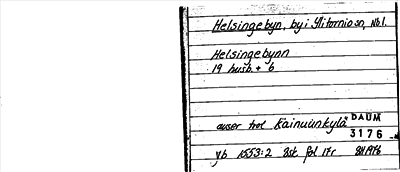 Helsingebyn, by i Ylitornio sn, Nb l.
Helsingebynn
19 husb. + 6
avser trol Kainuunkylä
DAUM
3176
yb 1553:2 Bst fol 17r